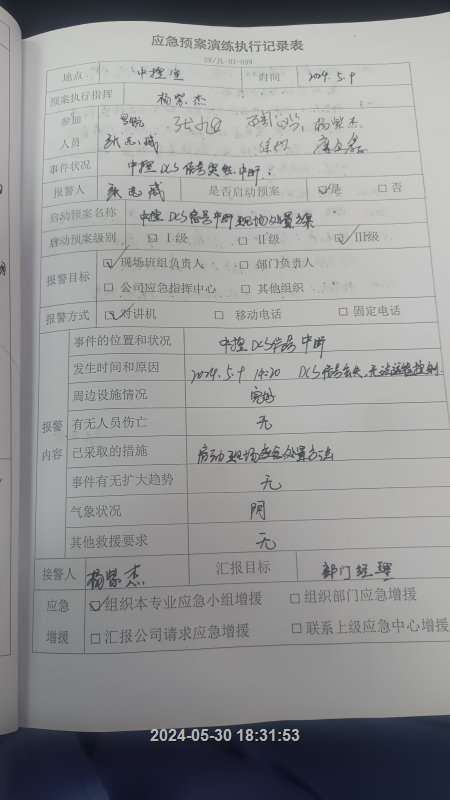 应急预案演练执行记录表
SR/JL-01-009
地点 中控室 时间 2024.5.9
预案执行指挥 杨紫杰
参加 杨紫杰.
人员
事件状况 中控DCS信号突然中断.
报警人 是否启动预案 ☑是 □否
启动预案名称 中控DCS信号中断现场处置方案
启动预案级别 □Ⅰ级 □Ⅱ级 ☑Ⅲ级
报警目标 ☑现场班组负责人 □部门负责人
□公司应急指挥中心 □其他组织
报警方式 ☑对讲机 □移动电话 □固定电话
报警内容
事件的位置和状况 中控DCS信号中断
发生时间和原因 2024.5.9 14:20 DCS信号丢失,无法远程控制
周边设施情况 完好
有无人员伤亡 无
已采取的措施 启动现场应急处置方法
事件有无扩大趋势 无
气象状况 阴
其他救援要求 无
接警人 杨紫杰 汇报目标 部门经理
应急增援 ☑组织本专业应急小组增援 □组织部门应急增援
□汇报公司请求应急增援 □联系上级应急中心增援
2024-05-30 18:31:53